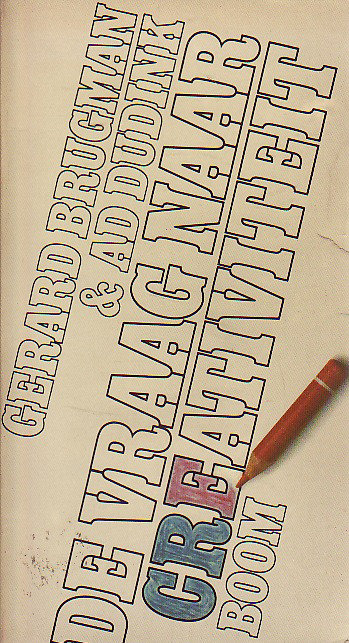 GERARD BRUGMAN
& AD DUDINK
DE VRAAG NAAR
CREATIVITEIT
BOOM